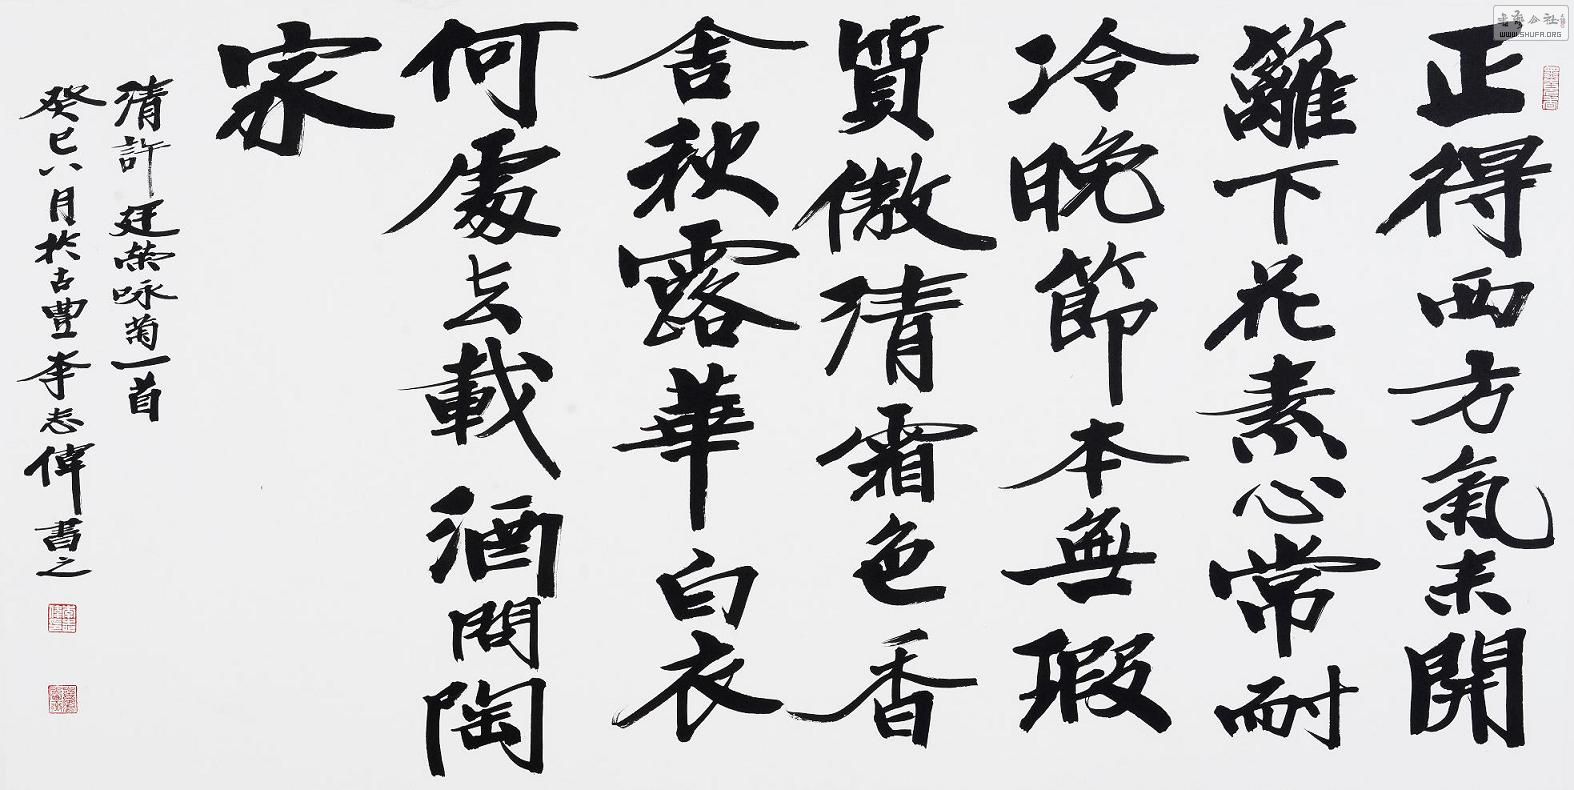 正得西方氣未開
籬下花素心常耐
冷晚節本無瑕
質傲清霜色香
含秋露華白衣
何處去載酒問陶
家
清許廷榮咏菊一首
癸巳八月於古豐李志偉書之
WWW.SHUFA.ORG